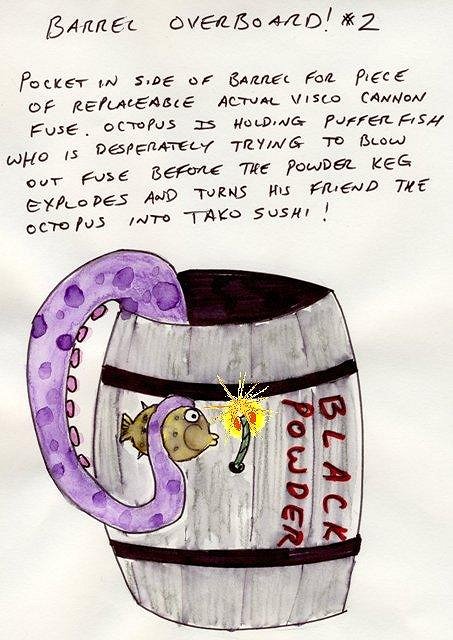 BARREL OVERBOARD! #2
POCKET IN SIDE OF BARREL FOR PIECE
OF REPLACEABLE ACTUAL VISCO CANNON
FUSE. OCTOPUS IS HOLDING PUFFER FISH
WHO IS DESPERATELY TRYING TO BLOW
OUT FUSE BEFORE THE POWDER KEG
EXPLODES AND TURNS HIS FRIEND THE
OCTOPUS INTO TAKO SUSHI!
BLACK
POWDER